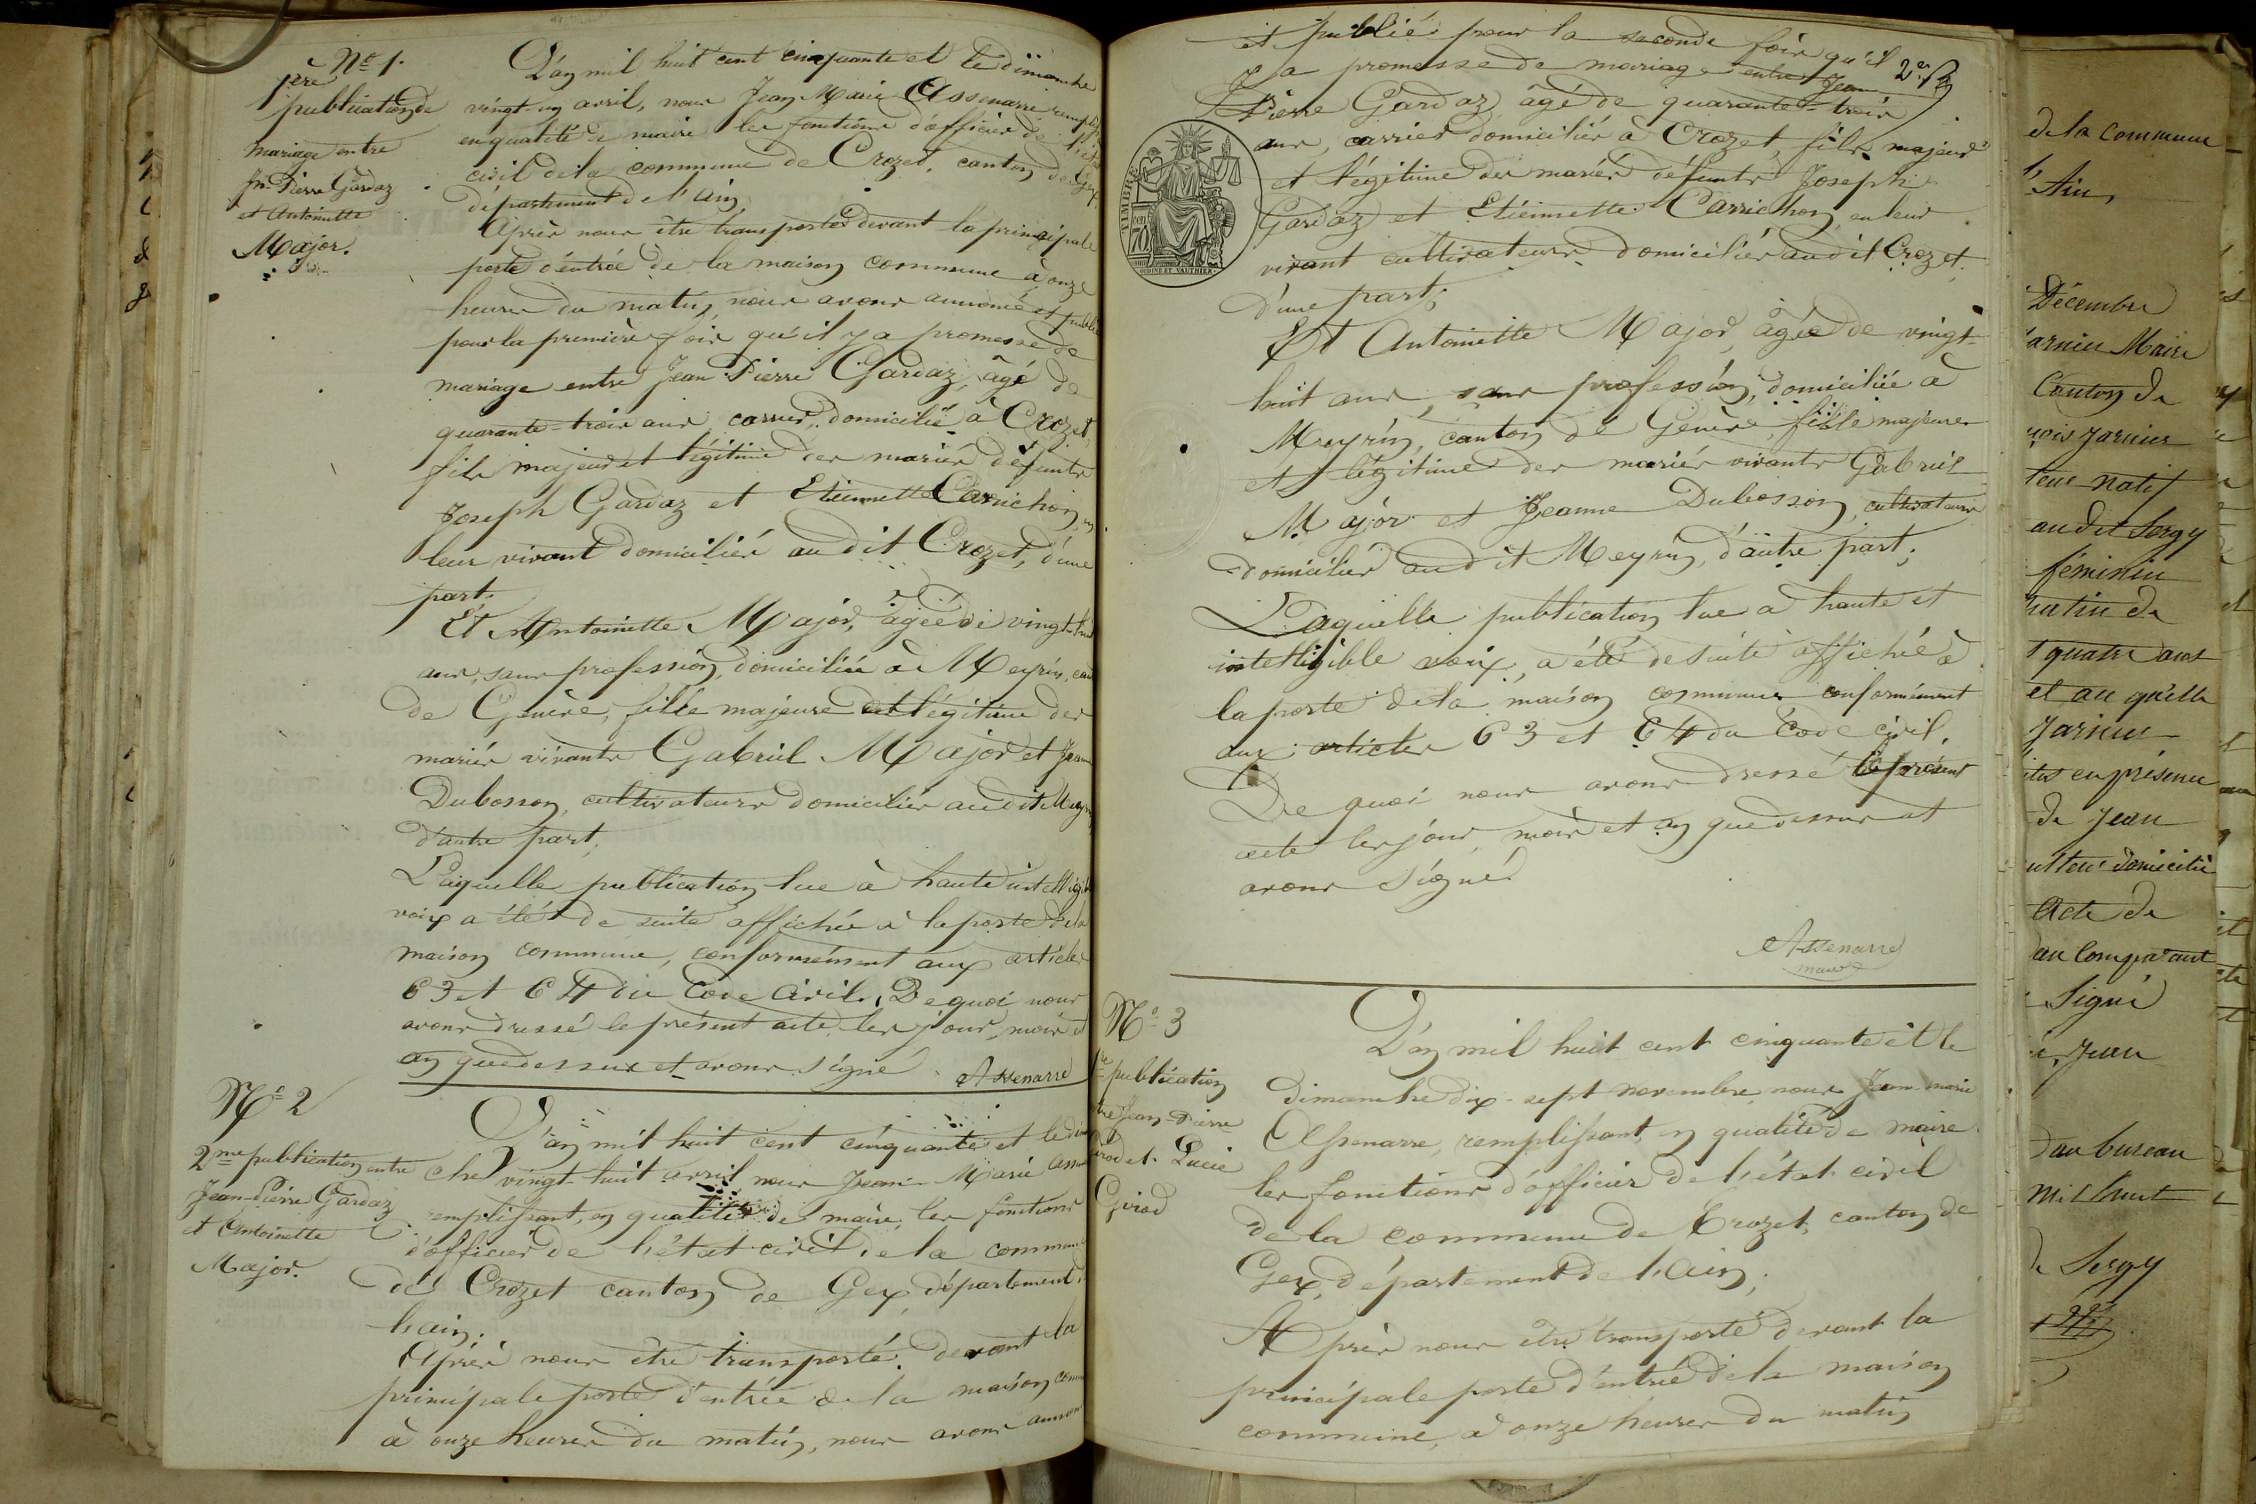 Nº 1.
1ère
publication de
mariage entre
Jn Pierre Gardaz
et Antoinette
Major.
L'an mil huit cent cinquante et le dimanche
vingt-un avril, nous Jean-Marie Assenarre
en qualité de maire les fonctions d'officier de l'état
civil de la commune de Crozet, canton de Gex
département de l'Ain.
Après nous être transporté devant la principale
porte d'entrée de la maison commune à onze
heures du matin, nous avons annoncé et publié
pour la première fois qu'il y a promesse de
mariage entre Jean Pierre Gardaz, âgé de
quarante-trois ans, carrier, domicilié à Crozet,
fils majeur et légitime des mariés défunts
Joseph Gardaz et Etiennette Carrichon, en
leur vivant domiciliés au dit Crozet, d'une
part.
Et Antoinette Major, âgée de vingt-huit
ans, sans profession, domiciliée à Meyrin, can
de Genève, fille majeure et légitime des
mariés vivants Gabriel Major et Jeanne
Dubosson, cultivateurs domiciliés audit Meyrin
d'autre part,
Laquelle publication lue à haute intelligible
voix a été de suite affichée à la porte de la
maison commune, conformément aux articles
63 et 64 du Code Civil. De quoi nous
avons dressé le présent acte les jour, mois et
an que dessus et avons signé.
Assenarre
Nº 2
2me publication entre
Jean-Pierre Gardaz
et Antoinette
Major.
L'an mil huit cent cinquante et le diman
che vingt-huit avril nous Jean-Marie Assen
remplissant, en qualité de maire, les fonctions
d'officier de l'état civil de la commune
de Crozet canton de Gex, département de
l'ain;
Après nous être transporté devant la
principale porte d'entrée de la maison comm
à onze heures du matin, nous avons annoncé
et publié pour la seconde fois qu'il
y a promesse de mariage entre Jean
Pierre Gardaz âgé de quarante-trois
ans, carrier domicilié à Crozet, fils majeur
et légitime des mariés défunts Joseph
Gardaz et Etiennette Carrichon, en leur
vivant cultivateurs domiciliés audit Crozet,
d'une part;
TIMBRE
70
OUDINÉ ET VAUTHIER
Et Antoinette Major, âgée de vingt-
huit ans, sans profession, domiciliée à
Meyrin, canton de Genève, fille majeure
et légitime des mariés vivants Gabriel
Major et Jeanne Dubosson, cultivateurs
domiciliés audit Meyrin, d'autre part;
Laquelle publication lue à haute et
intelligible voix, a été de suite affichée à
la porte de la maison commune conformément
aux articles 63 et 64 du Code civil.
De quoi nous avons dressé le présent
acte les jour, mois et an que dessus et
avons signé.
Assenarre
maire
Nº 3
publication
Jean-Pierre
et Lucie
Girod
L'an mil huit cent cinquante et le
dimanche dix-sept novembre, nous Jean-Marie
Assenarre, remplissant, en qualité de maire
les fonctions d'officier de l'état civil
de la commune de Crozet, canton de
Gex, département de l'Ain;
Après nous être transporté devant la
principale porte d'entrée de la maison
commune, à onze heures du matin
de la commune
l'Ain,
Décembre
Maire
Canton de
natif
au dit Sergy
féminin
quatre ans
et au quelle
en présence
de Jean
domicilié
Acte de
au comparant
Signé
Jean
au bureau
mil huit
de Sergy